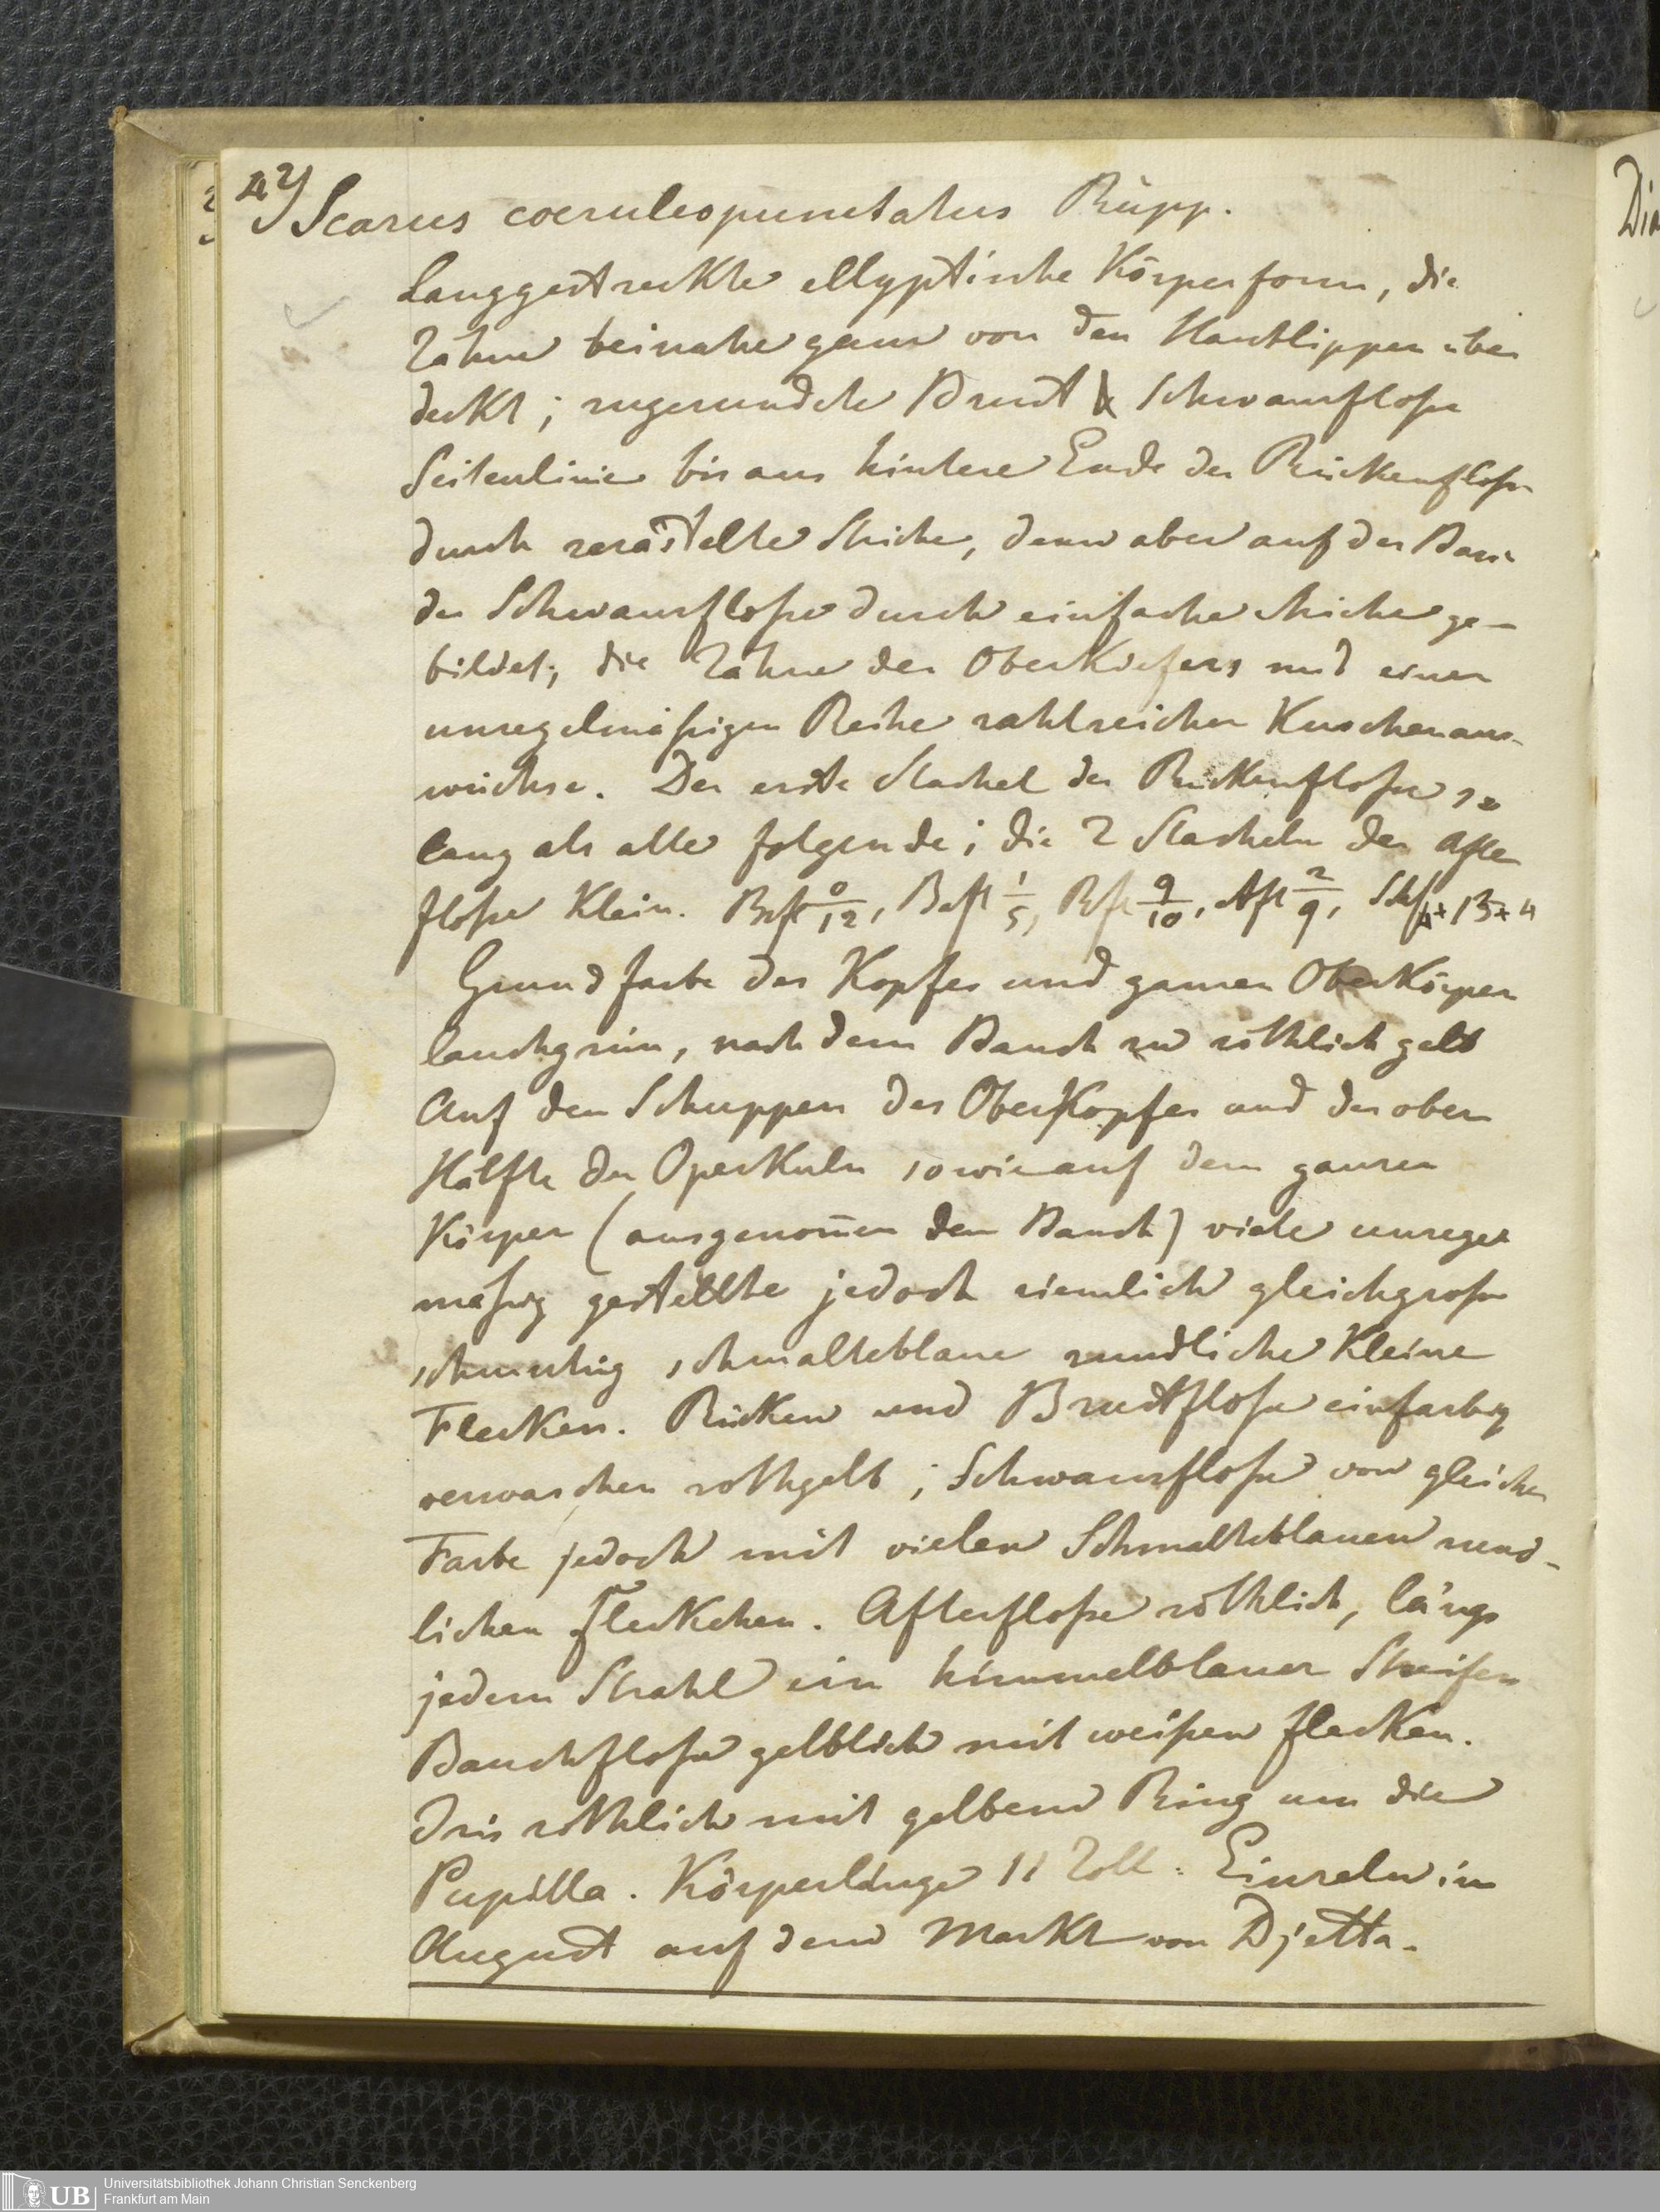 42) Scarus coeruleopunctatus Rüpp.
Langgestreckte ellyptische Körperform, die
Zähne beinahe ganz von den Hautlippen über
deckt; zugerundete Brust & Schwanzfloße
Seitenlinie bis ans hintere Ende der Rückenfloße
durch verästelte Striche, dann aber auf der Basis
der Schwanzfloße durch einfache Striche ge-
bildet; die Zähne des Oberkiefers mit einer
unregelmäßigen Reihe zahlreicher Knochenaus-
wüchse. Der erste Stachel der Rückenfloße so
lang als alle folgende; die 2 Stacheln der After
floße klein. Brfl 0/12, Bafl 1/5, Rfl 9/10, Afl 2/9, Schfl 4+13+4
Grundfarbe des Kopfes und ganzen Oberkörper
lauchgrün, nach dem Bauch zu röthlich gelb
Auf den Schuppen des Oberkopfes und der obern
Hälfte der Operkuln sowie auf dem ganzen
Körper (ausgenom̄en den Bauch) viele unregel
mäßig gestellte jedoch ziemlich gleichgroße
schmutzig schmalteblaue rundliche kleine
Flecken. Rücken und Brustfloße einfarbig
verwaschen rothgelb; Schwanzfloße von gleicher
Farbe jedoch mit vielen Schmalteblauen rund-
lichen Fleckchen. Afterfloße röthlich, längs
jedem Strahl ein himmelblauer Streifen
Bauchfloße gelblich mit weißen flecken.
Iris röthlich mit gelbem Ring um die
Pupilla. Körperlänge 11 Zoll. Einzeln im
August auf dem Markt von Djetta.
Universitätsbibliothek Johann Christian Senckenberg
Frankfurt am Main
UB